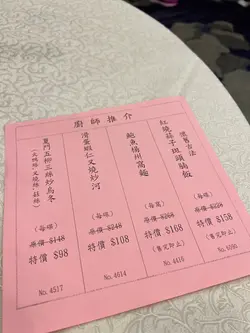 廚師推介
懷舊古法
紅燒荔芋斑頭腩飯
(每碟)
原價$228
特價 $158
(售完即止)
No. 4596
鮑魚楊州窩麵
(每窩)
原價$268
特價 $168
(售完即止)
No. 4416
滑蛋蝦仁叉燒炒河
(每碟)
原價$248
特價 $108
No. 4614
廈門五柳三絲炒烏冬
(每碟)
原價$148
特價 $98
No. 4517